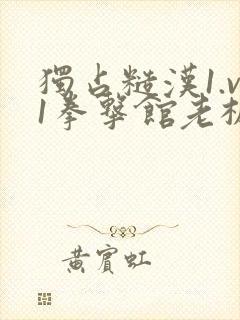 獨占糙漢1.v
1拳擊館老板
黃賓虹